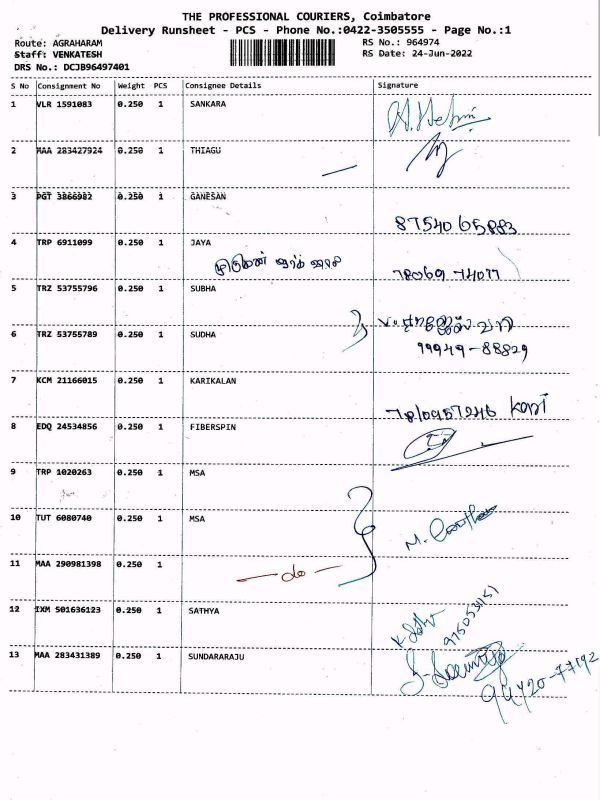 THE PROFESSIONAL COURIERS, Coimbatore
Delivery Runsheet - PCS - Phone No.:0422-3505555 - Page No.:1
Route: AGRAHARAM RS No.: 964974
Staff: VENKATESH RS Date: 24-Jun-2022
DRS No.: DCJB96497401
S No Consignment No Weight PCS Consignee Details Signature
1 VLR 1591083 0.250 1 SANKARA
2 MAA 283427924 0.250 1 THIAGU
3 PGT 3866982 0.250 1 GANESAN
87540 65883
4 TRP 6911099 0.250 1 JAYA
78069 74077
5 TRZ 53755796 0.250 1 SUBHA
6 TRZ 53755789 0.250 1 SUDHA
99949-88829
7 KCM 21166015 0.250 1 KARIKALAN
7810957246 Kani
8 EDQ 24534856 0.250 1 FIBERSPIN
9 TRP 1020263 0.250 1 MSA
10 TUT 6080740 0.250 1 MSA
11 MAA 290981398 0.250 1
— do —
12 IXM 501636123 0.250 1 SATHYA
13 MAA 283431389 0.250 1 SUNDARARAJU
94420-77192